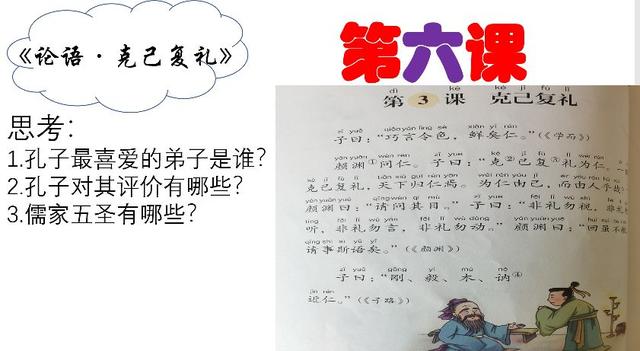 《论语·克己复礼》
第六课
思考：
1.孔子最喜爱的弟子是谁？
2.孔子对其评价有哪些？
3.儒家五圣有哪些？
dì kè kè jǐ fù lǐ
第 3 课 克己复礼
zǐ yuē qiǎo yán lìng sè xiǎn yǐ rén
子曰：“巧言令色，鲜矣仁。”（《学而》）
颜渊①问仁。子曰：“克②己复③礼为仁。一
克己复礼，天下归仁焉。为仁由己，而由人乎哉
颜渊曰：“请问其目。”子曰：“非礼勿视，非礼
听，非礼勿言，非礼勿动。”颜渊曰：“回虽不
请事斯语矣。”（《颜渊》）
zǐ yuē gāng yì mù nè
子曰：“刚、毅、木、讷④
jìn rén
近仁。”（《子路》）